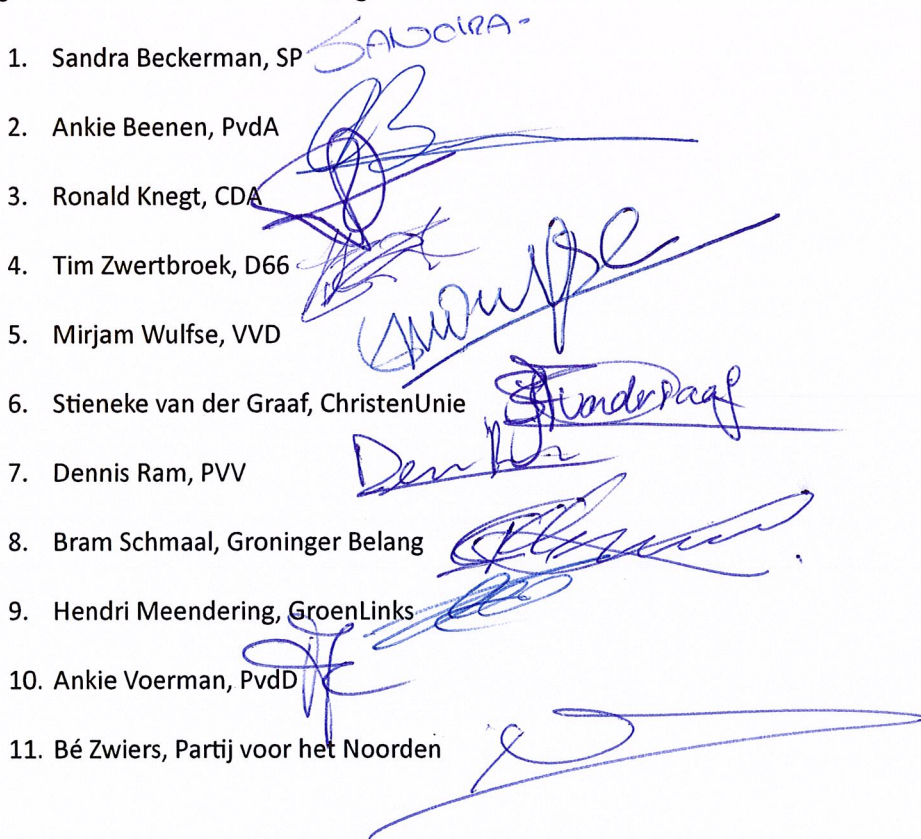 1. Sandra Beckerman, SP SANDRA-
2. Ankie Beenen, PvdA
3. Ronald Knegt, CDA
4. Tim Zwertbroek, D66
5. Mirjam Wulfse, VVD
6. Stieneke van der Graaf, ChristenUnie
7. Dennis Ram, PVV
8. Bram Schmaal, Groninger Belang
9. Hendri Meendering, GroenLinks
10. Ankie Voerman, PvdD
11. Bé Zwiers, Partij voor het Noorden